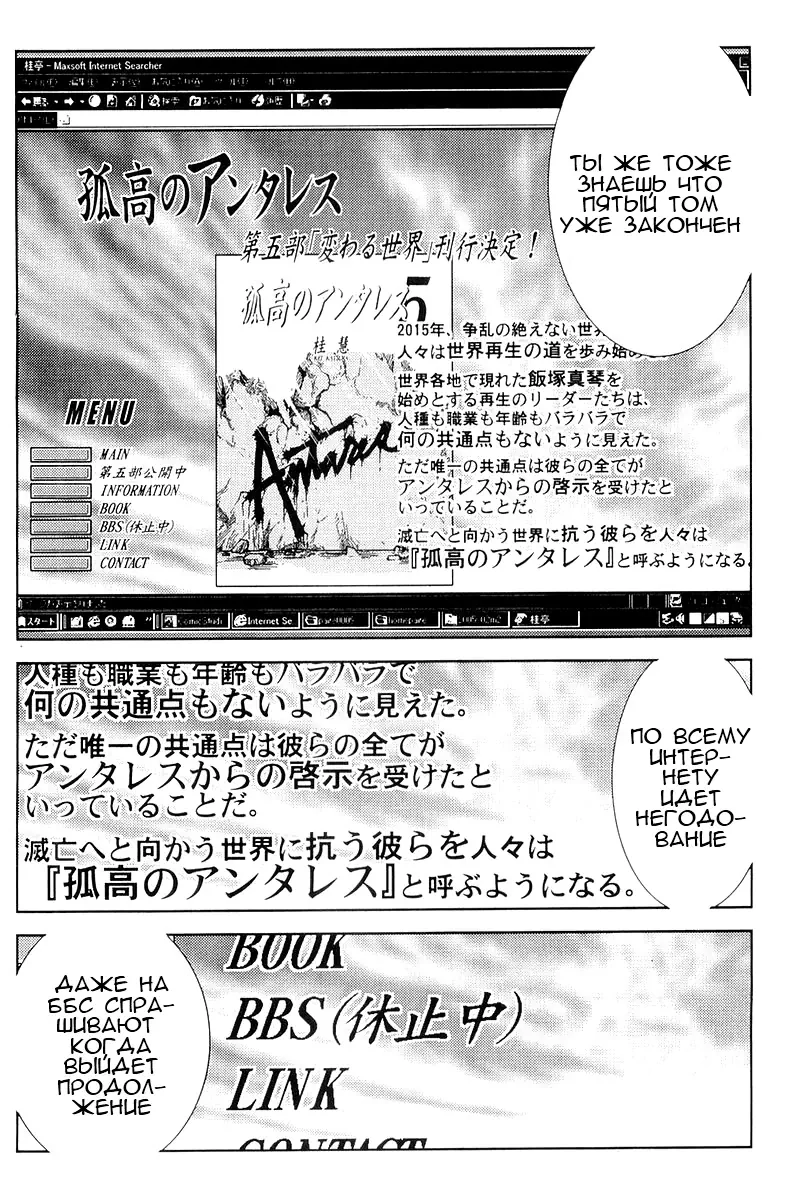 桂亭 - Maxsoft Internet Searcher
ТЫ ЖЕ ТОЖЕ
ЗНАЕШЬ ЧТО
ПЯТЫЙ ТОМ
УЖЕ ЗАКОНЧЕН
孤高のアンタレス
第五部「変わる世界」刊行決定!
孤高のアンタレス 5
桂 慧
Antares
2015年、争乱の絶えない世
人々は世界再生の道を歩み始
世界各地で現れた飯塚真琴を
始めとする再生のリーダーたちは、
人種も職業も年齢もバラバラで
何の共通点もないように見えた。
ただ唯一の共通点は彼らの全てが
アンタレスからの啓示を受けたと
いっていることだ。
滅亡へと向かう世界に抗う彼らを人々は
『孤高のアンタレス』と呼ぶようになる。
MENU
MAIN
第五部公開中
INFORMATION
BOOK
BBS(休止中)
LINK
CONTACT
スタート
Internet Se
桂亭
人種も職業も年齢もバラバラで
何の共通点もないように見えた。
ただ唯一の共通点は彼らの全てが
アンタレスからの啓示を受けたと
いっていることだ。
滅亡へと向かう世界に抗う彼らを人々は
『孤高のアンタレス』と呼ぶようになる。
ПО ВСЕМУ
ИНТЕР-
НЕТУ
ИДЕТ
НЕГОДО-
ВАНИЕ
ДАЖЕ НА
ББС СПРА-
ШИВАЮТ
КОГДА
ВЫЙДЕТ
ПРОДОЛ-
ЖЕНИЕ
BOOK
BBS(休止中)
LINK
CONTACT